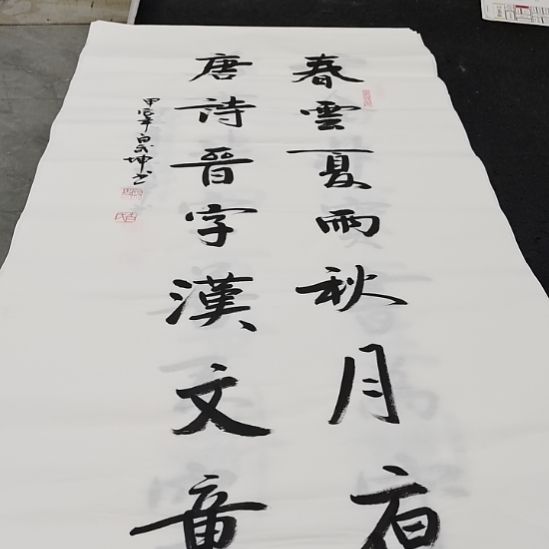 春雲夏雨秋月夜
唐詩晉字漢文章
甲辰年
坤书